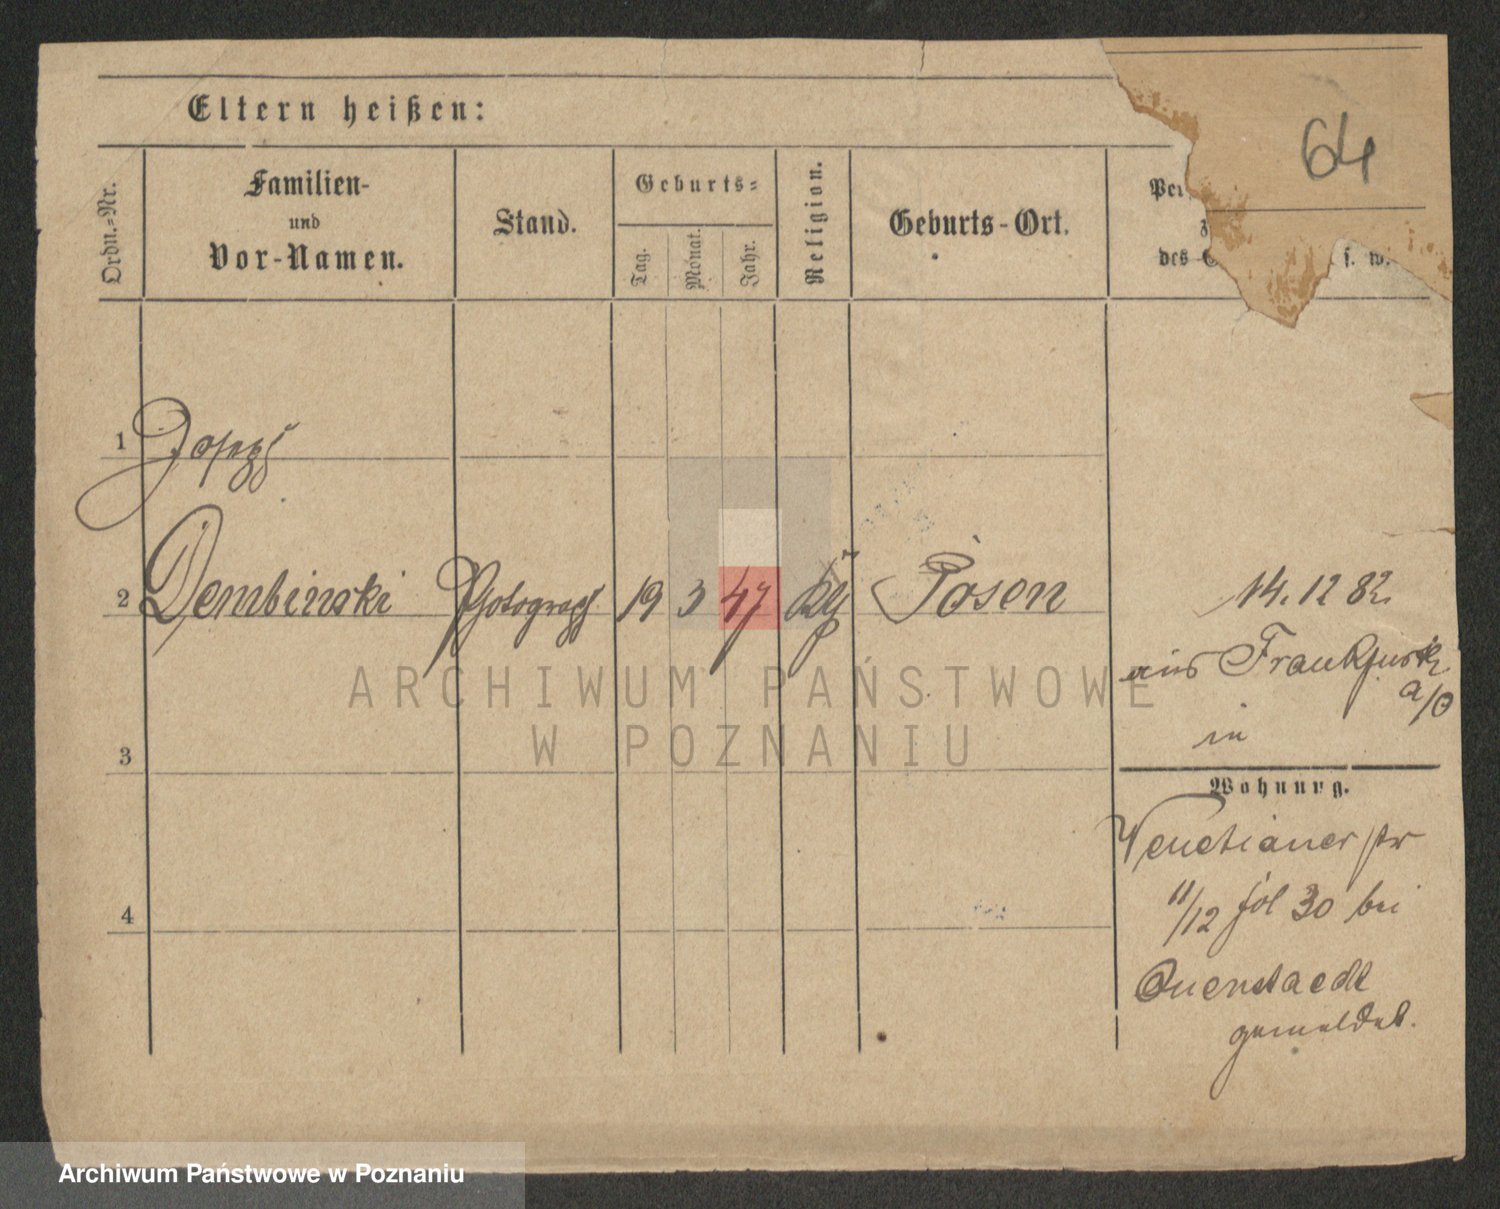 64
Eltern heißen:
Ordn.-Nr.
Familien-
und
Vor-Namen.
Stand.
Geburts-
Tag.
Monat.
Jahr.
Religion.
Geburts-Ort.
des
s. w.
1 Josef
2 Dembinski Photograph 19 3 47 Posen
14. 12 82
aus Frankfurt
a/O
in
3
Wohnung.
Venetianer str
11/12 fol 30 bei
4
Quenstaedt
gemeldet.
ARCHIWUM PAŃSTWOWE
W POZNANIU
Archiwum Państwowe w Poznaniu